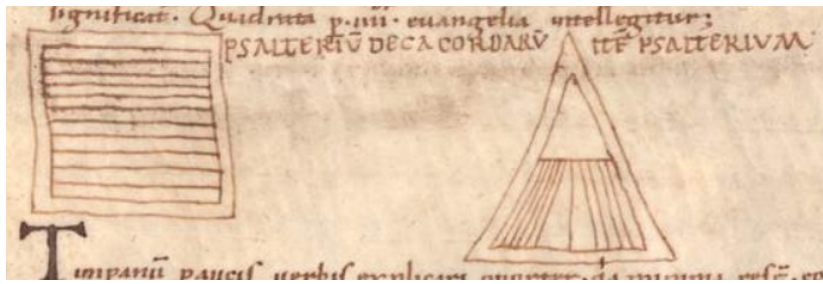 significat. Quadrata p. iiii. euangelia intellegitur;
PSALTERIŪ DECACORDARŪ ITĒ PSALTERIUM
Timpanū paucis uerbis explicari oportet.